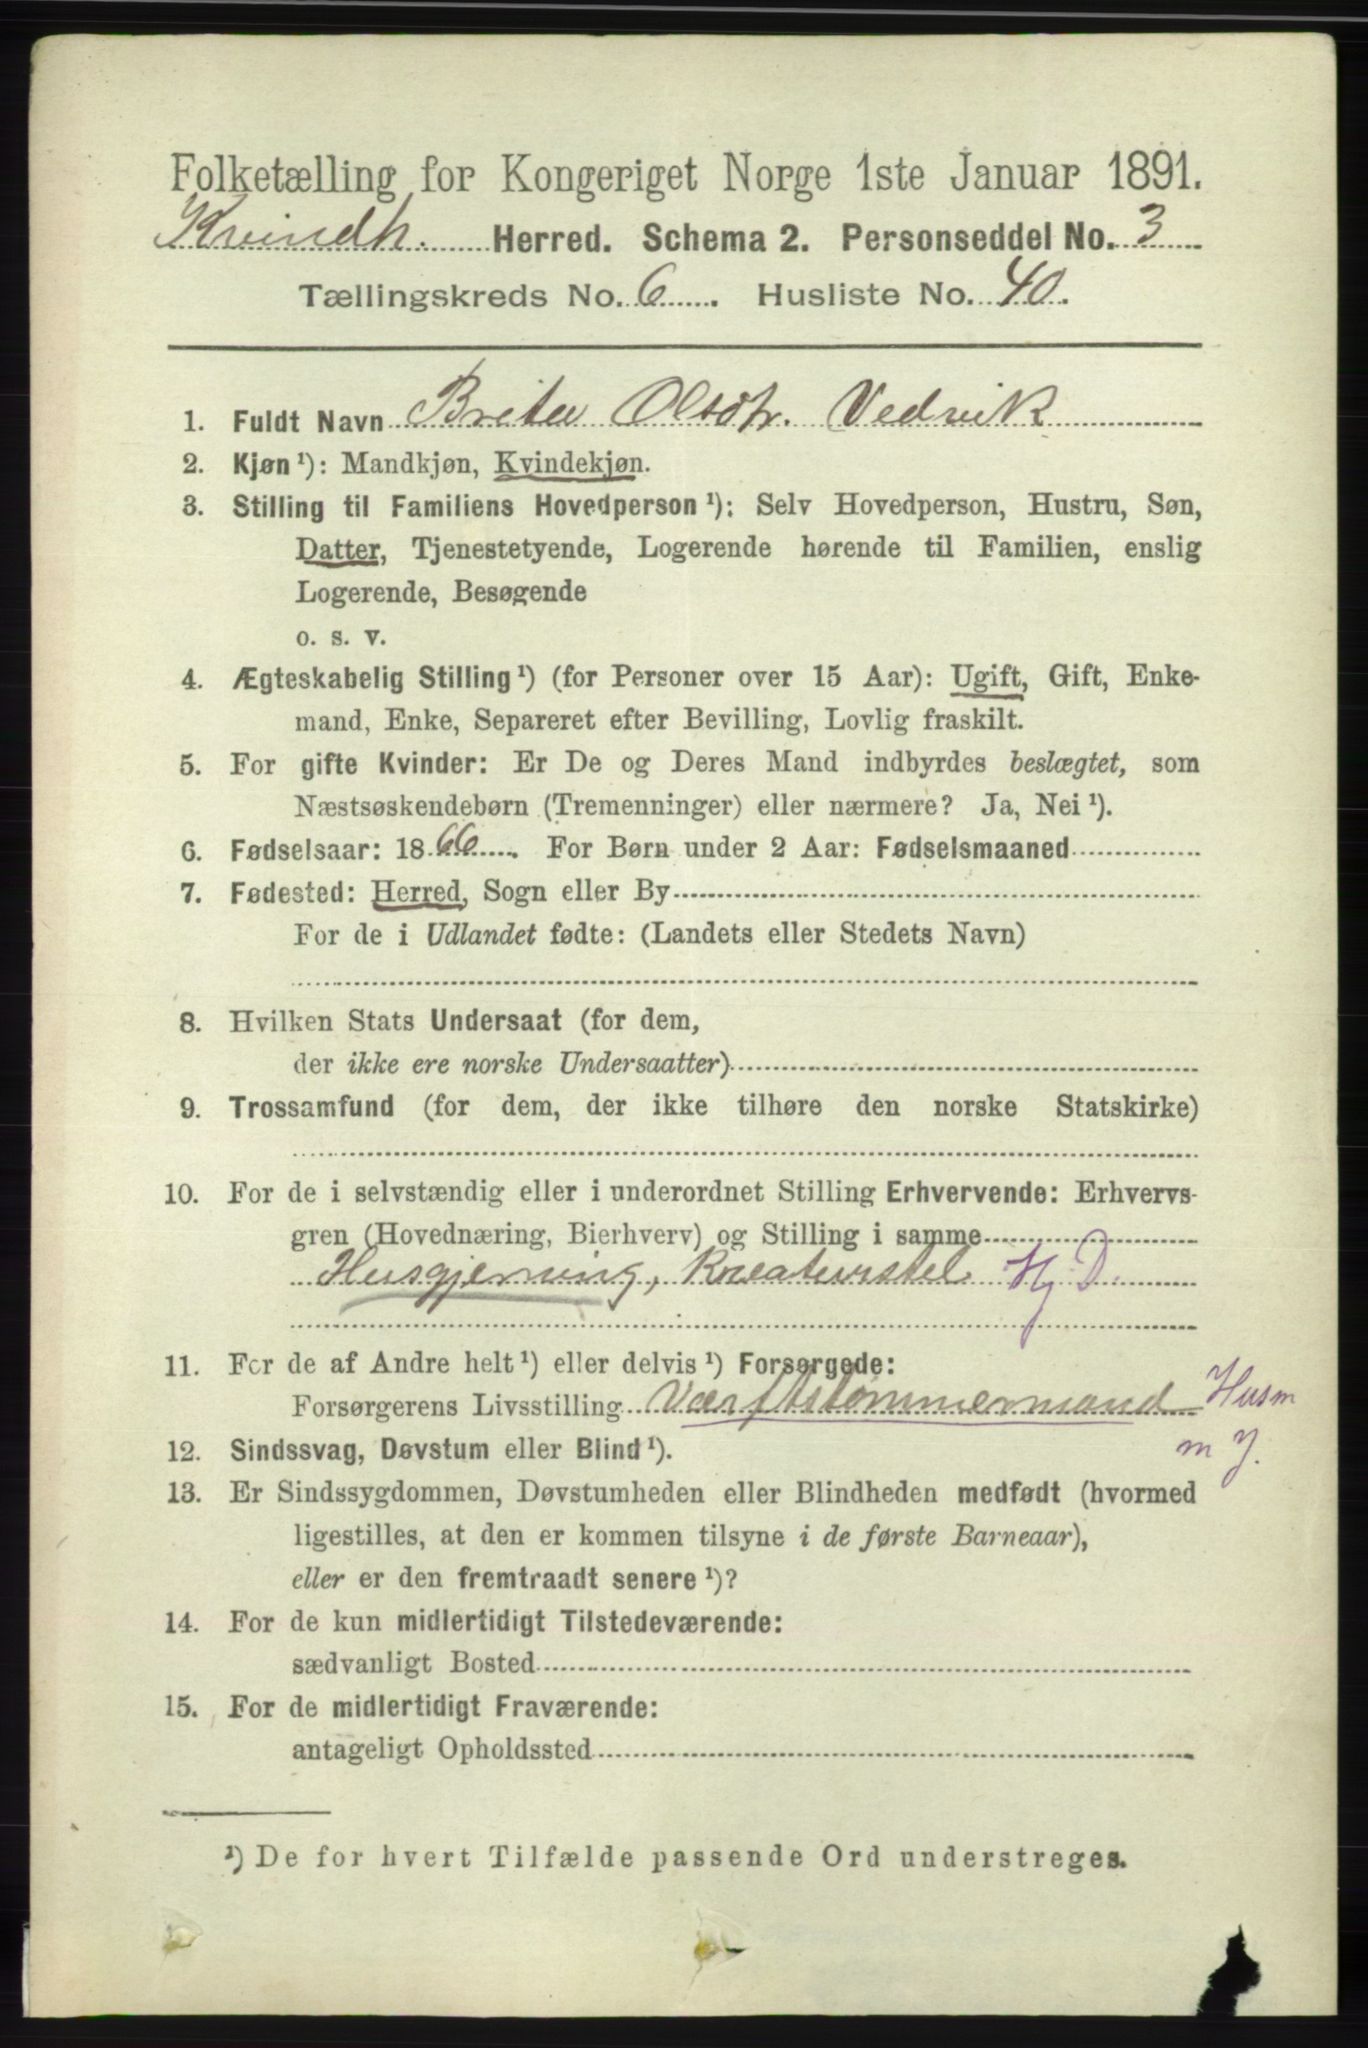 Folketælling for Kongeriget Norge 1ste Januar 1891.
Kvindh. Herred. Schema 2. Personseddel No. 3
Tællingskreds No. 6. Husliste No. 40.
1. Fuldt Navn Brita Olsdtr. Vedvik
2. Kjøn ¹): Mandkjøn, Kvindekjøn.
3. Stilling til Familiens Hovedperson ¹): Selv Hovedperson, Hustru, Søn,
Datter, Tjenestetyende, Logerende hørende til Familien, enslig
Logerende, Besøgende
o. s. v.
4. Ægteskabelig Stilling ¹) (for Personer over 15 Aar): Ugift, Gift, Enke-
mand, Enke, Separeret efter Bevilling, Lovlig fraskilt.
5. For gifte Kvinder: Er De og Deres Mand indbyrdes beslægtet, som
Næstsøskendebørn (Tremenninger) eller nærmere? Ja, Nei ¹).
6. Fødselsaar: 1866. For Børn under 2 Aar: Fødselsmaaned
7. Fødested: Herred, Sogn eller By
For de i Udlandet fødte: (Landets eller Stedets Navn)
8. Hvilken Stats Undersaat (for dem,
der ikke ere norske Undersaatter)
9. Trossamfund (for dem, der ikke tilhøre den norske Statskirke)
10. For de i selvstændig eller i underordnet Stilling Erhvervende: Erhvervs-
gren (Hovednæring, Bierhverv) og Stilling i samme
Husgjerning, Kreaturstel Hj D.
11. For de af Andre helt ¹) eller delvis ¹) Forsørgede:
Forsørgerens Livsstilling Værftstømmermand Husm
m J.
12. Sindssvag, Døvstum eller Blind ¹).
13. Er Sindssygdommen, Døvstumheden eller Blindheden medfødt (hvormed
ligestilles, at den er kommen tilsyne i de første Barneaar),
eller er den fremtraadt senere ¹)?
14. For de kun midlertidigt Tilstedeværende:
sædvanligt Bosted
15. For de midlertidigt Fraværende:
antageligt Opholdssted
¹) De for hvert Tilfælde passende Ord understreges.